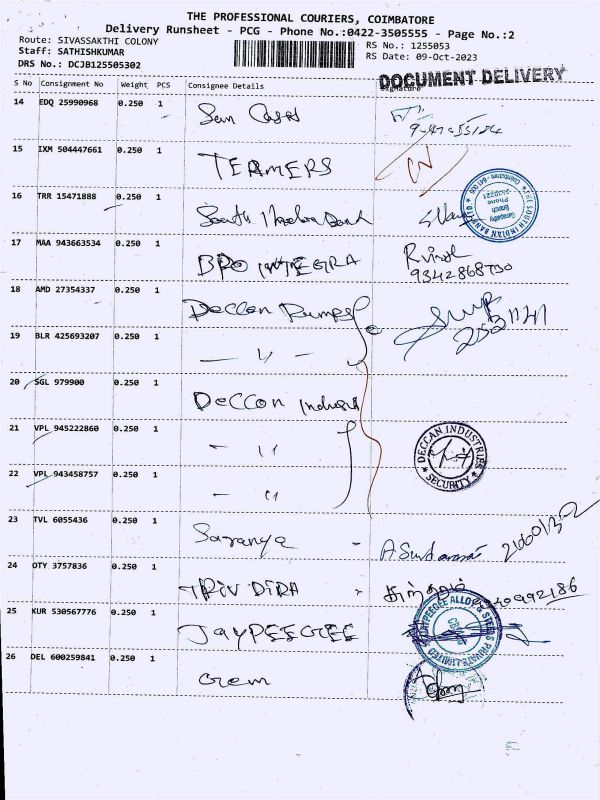 THE PROFESSIONAL COURIERS, COIMBATORE
Delivery Runsheet - PCG - Phone No.:0422-3505555 - Page No.:2
Route: SIVASSAKTHI COLONY
Staff: SATHISHKUMAR
DRS No.: DCJB125505302
RS No.: 1255053
RS Date: 09-Oct-2023
DOCUMENT DELIVERY
S No Consignment No Weight PCS Consignee Details Signature
14 EDQ 25990968 0.250 1
15 IXM 504447661 0.250 1 TERMERS
16 TRR 15471888 0.250 1 South Bank
THE SOUTH INDIAN BANK LTD
Ganapathy
Branch
Phone
Coimbatore - 641 006
17 MAA 943663534 0.250 1 BPO INTEGRA
9342868730
18 AMD 27354337 0.250 1 Deccan Pumps
2531141
19 BLR 425693207 0.250 1 — 〃 —
20 SGL 979900 0.250 1 Deccan
21 VPL 945222860 0.250 1 - 〃
DECCAN INDUSTRIES
SECURITY
22 VPL 943458757 0.250 1 - 〃
23 TVL 6055436 0.250 1 Saranya -
24 OTY 3757836 0.250 1 TRIV DIRA
25 KUR 530567776 0.250 1 JAYPEEGEE
JAYPEEGEE ALLOY & STEELS PRIVATE LIMITED
26 DEL 600259841 0.250 1 Gem